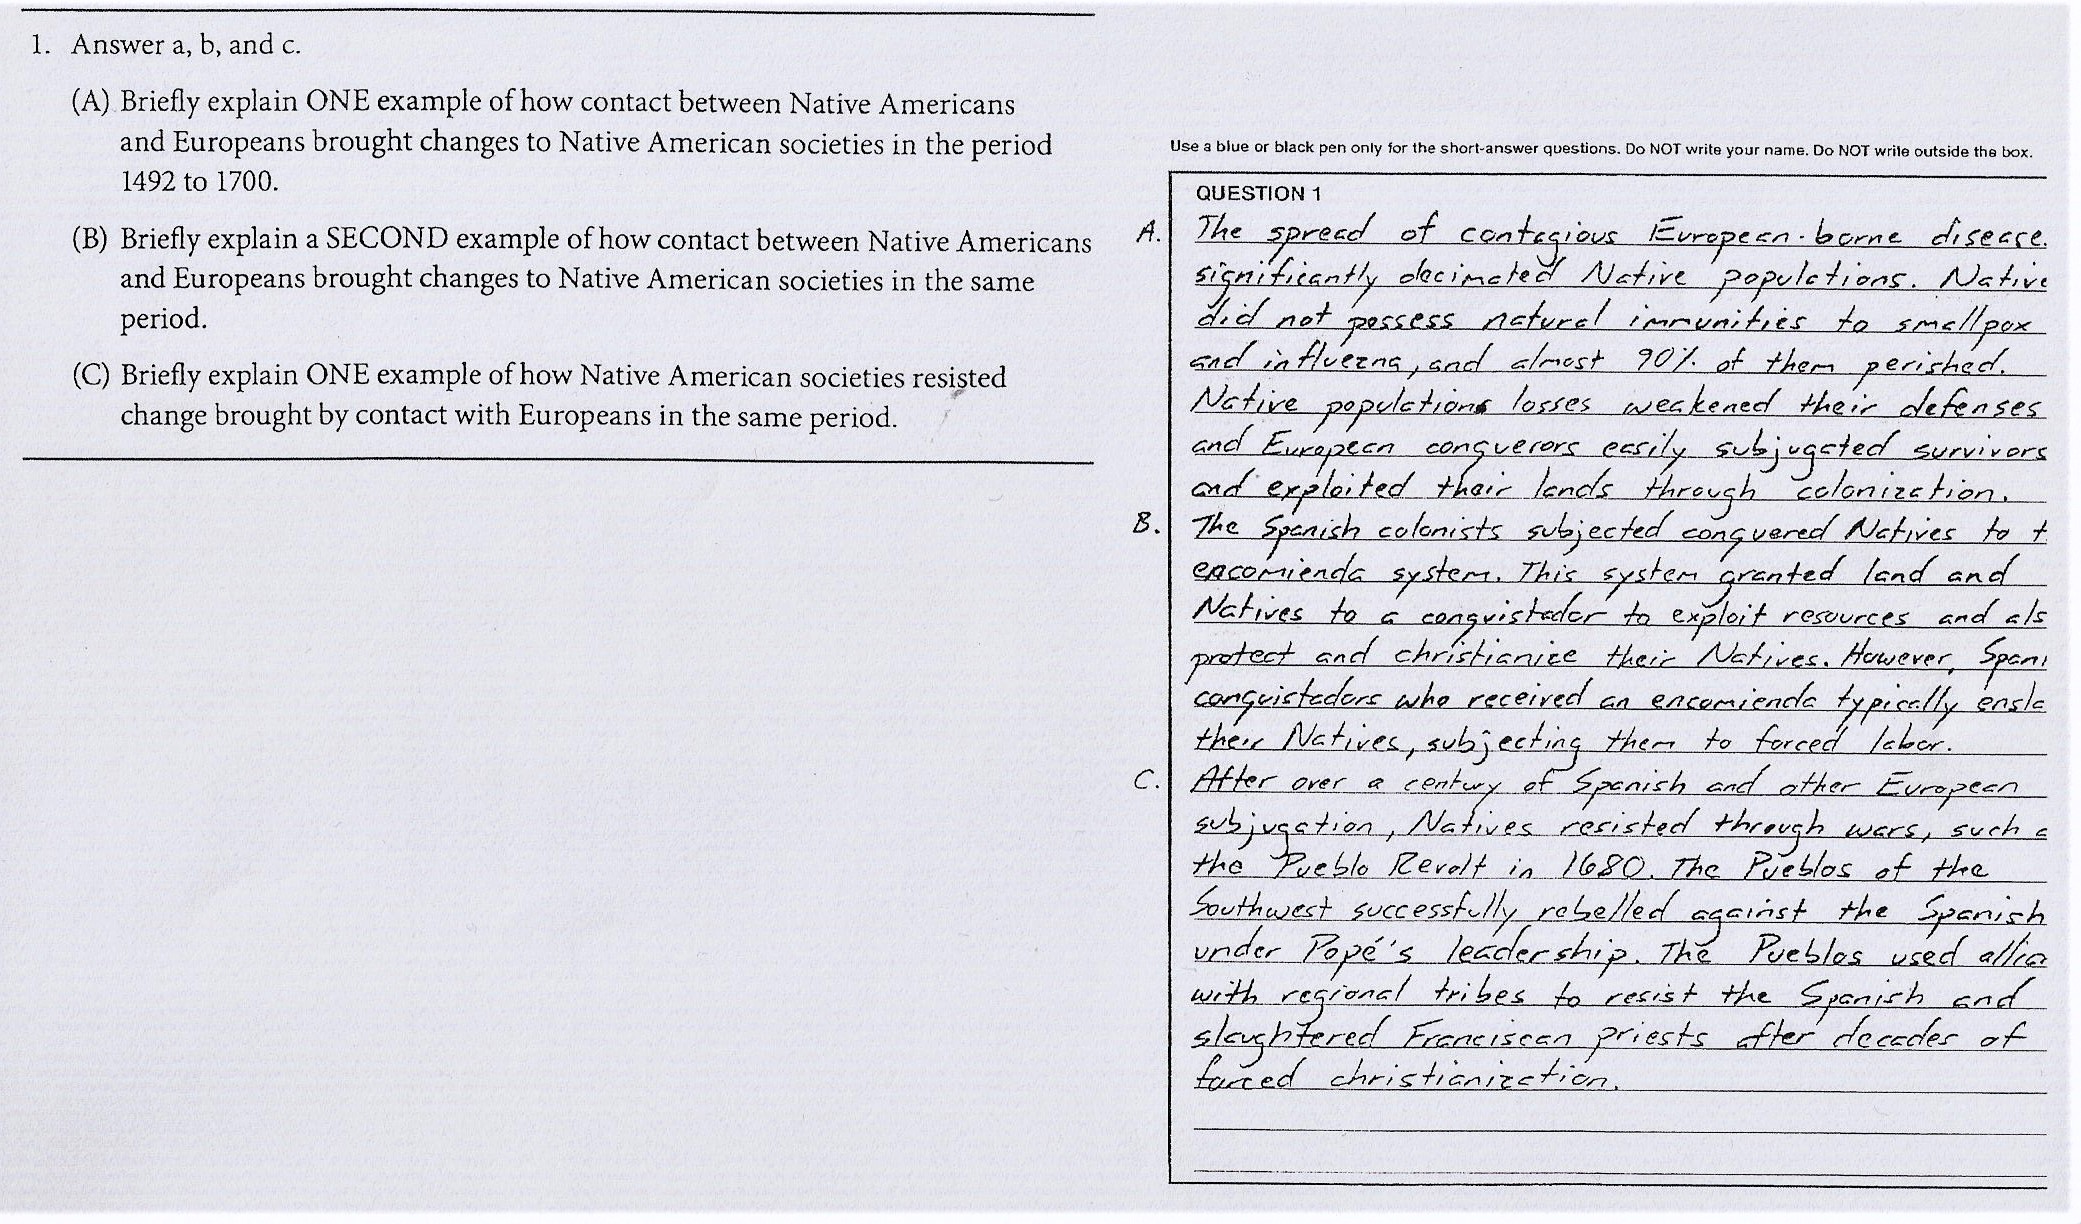 1. Answer a, b, and c.
(A) Briefly explain ONE example of how contact between Native Americans
and Europeans brought changes to Native American societies in the period
1492 to 1700.
(B) Briefly explain a SECOND example of how contact between Native Americans
and Europeans brought changes to Native American societies in the same
period.
(C) Briefly explain ONE example of how Native American societies resisted
change brought by contact with Europeans in the same period.
Use a blue or black pen only for the short-answer questions. Do NOT write your name. Do NOT write outside the box.
QUESTION 1
A. The spread of contagious European-borne disease.
significantly decimated Native populations. Native
did not possess natural immunities to smallpox
and influezna, and almost 90% of them perished.
Native populations losses weakened their defenses
and European conquerors easily subjugated survivors
and exploited their lands through colonization.
B. The Spanish colonists subjected conquered Natives to t
encomienda system. This system granted land and
Natives to a conquistador to exploit resources and als
protect and christianize their Natives. However, Spani
conquistadors who received an encomienda typically ensla
their Natives, subjecting them to forced labor.
C. After over a century of Spanish and other European
subjugation, Natives resisted through wars, such a
the Pueblo Revolt in 1680. The Pueblos of the
Southwest successfully rebelled against the Spanish
under Popé's leadership. The Pueblos used allia
with regional tribes to resist the Spanish and
slaughtered Franciscan priests after decades of
forced christianization.